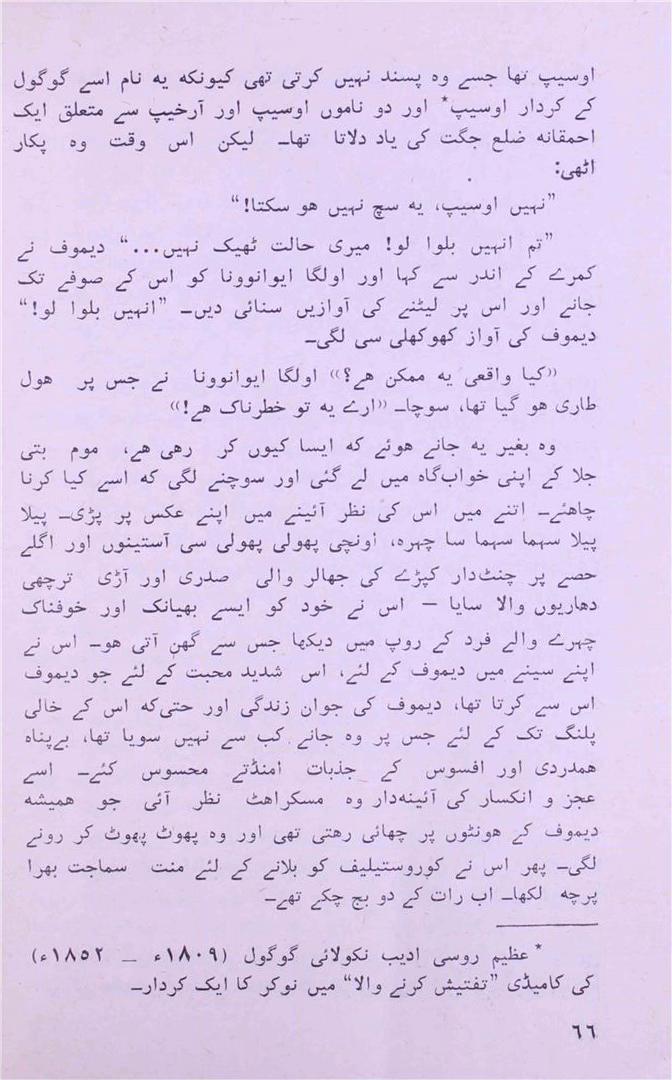 اوسیپ تھا جسے وہ پسند نہیں کرتی تھی کیونکہ یہ نام اسے گوگول
کے کردار اوسیپ* اور دو ناموں اوسیپ اور آرخیپ سے متعلق ایک
احمقانہ ضلع جگت کی یاد دلاتا تھا۔ لیکن اس وقت وہ پکار
اٹھی:
”نہیں اوسیپ، یہ سچ نہیں ہو سکتا!“
”تم انہیں بلوا لو! میری حالت ٹھیک نہیں...“ دیموف نے
کمرے کے اندر سے کہا اور اولگا ایوانوونا کو اس کے صوفے تک
جانے اور اس پر لیٹنے کی آوازیں سنائی دیں۔ ”انہیں بلوا لو!“
دیموف کی آواز کھوکھلی سی لگی۔
«کیا واقعی یہ ممکن ہے؟» اولگا ایوانوونا نے جس پر ہول
طاری ہو گیا تھا، سوچا۔ «ارے یہ تو خطرناک ہے!»
وہ بغیر یہ جانے ہوئے کہ ایسا کیوں کر رہی ہے، موم بتی
جلا کے اپنی خواب‌گاہ میں لے گئی اور سوچنے لگی کہ اسے کیا کرنا
چاہئے۔ اتنے میں اس کی نظر آئینے میں اپنے عکس پر پڑی۔ پیلا
پیلا سہما سہما سا چہرہ، اونچی پھولی پھولی سی آستینوں اور اگلے
حصے پر چنٹ‌دار کپڑے کی جھالر والی صدری اور آڑی ترچھی
دھاریوں والا سایا — اس نے خود کو ایسے بھیانک اور خوفناک
چہرے والے فرد کے روپ میں دیکھا جس سے گھن آتی ہو۔ اس نے
اپنے سینے میں دیموف کے لئے، اس شدید محبت کے لئے جو دیموف
اس سے کرتا تھا، دیموف کی جوان زندگی اور حتی‌کہ اس کے خالی
پلنگ تک کے لئے جس پر وہ جانے کب سے نہیں سویا تھا، بے‌پناہ
ہمدردی اور افسوس کے جذبات امنڈتے محسوس کئے۔ اسے
عجز و انکسار کی آئینہ‌دار وہ مسکراہٹ نظر آئی جو ہمیشہ
دیموف کے ہونٹوں پر چھائی رہتی تھی اور وہ پھوٹ پھوٹ کر رونے
لگی۔ پھر اس نے کوروستیلیف کو بلانے کے لئے منت سماجت بھرا
پرچہ لکھا۔ اب رات کے دو بج چکے تھے۔
* عظیم روسی ادیب نکولائی گوگول (۱۸۰۹ء — ۱۸۵۲ء)
کی کامیڈی ”تفتیش کرنے والا“ میں نوکر کا ایک کردار۔
٦٦